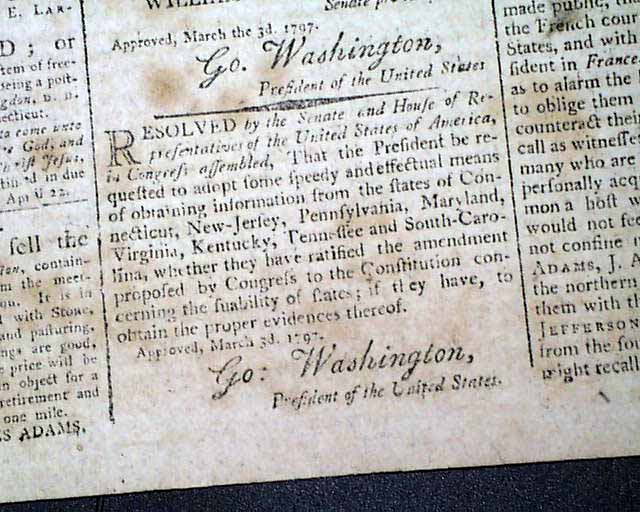 E. LAR-
D; or
tem of free-
being a post-
gdon, D. D.
ecticut.
to come unto
God, and
hrist Jesus,
in due
April 22.
sell the
contain-
m the meet-
on. It is in
with Stone,
and pasturing,
ings are good,
price will be
n object for a
retirement and
one mile.
ES ADAMS.
Senate pro
Approved, March the 3d. 1797.
Go. Washington,
President of the United States
RESOLVED by the Senate and House of Re-
presentatives of the United States of America,
in Congress assembled, That the President be re-
quested to adopt some speedy and effectual means
of obtaining information from the states of Con-
necticut, New-Jersey, Pennsylvania, Maryland,
Virginia, Kentucky, Tennessee and South-Caro-
lina, whether they have ratified the amendment
proposed by Congress to the Constitution con-
cerning the suability of states; if they have, to
obtain the proper evidences thereof.
Approved, March 3d. 1797.
Go: Washington,
President of the United States.
made public, th
the French cour
States, and with
sident in France
as to alarm the
to oblige them
counteract their
call as witnesse
many who are
personally acq
mon a host w
would not fe
not confine
ADAMS, J. A
the northern
them with th
JEFFERSON
from the sou
might recall